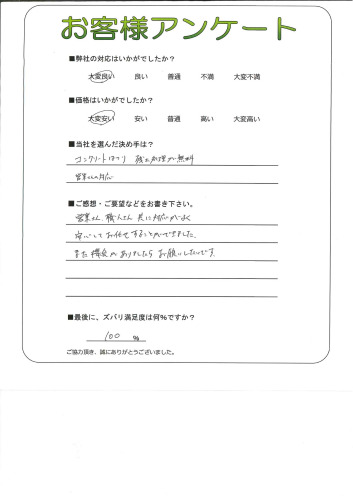 お客様アンケート
■弊社の対応はいかがでしたか？
大変良い 良い 普通 不満 大変不満
■価格はいかがでしたか？
大変安い 安い 普通 高い 大変高い
■当社を選んだ決め手は？
コンクリートはつり 残土処理が無料
営業さんの対応
■ご感想・ご要望などをお書き下さい。
営業さん、職人さん 共に対応がよく
安心してお任せすることができました。
また機会がありましたらお願いしたいです。
■最後に、ズバリ満足度は何%ですか？
100 %
ご協力頂き、誠にありがとうございました。